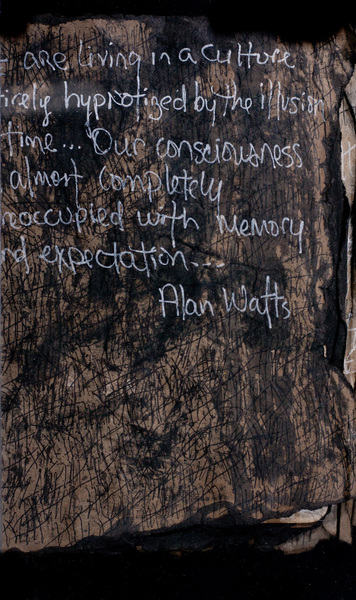 are living in a culture
tirely hypnotized by the illusion
time... Our consciousness
almost completely
reoccupied with memory
nd expectation...
Alan Watts